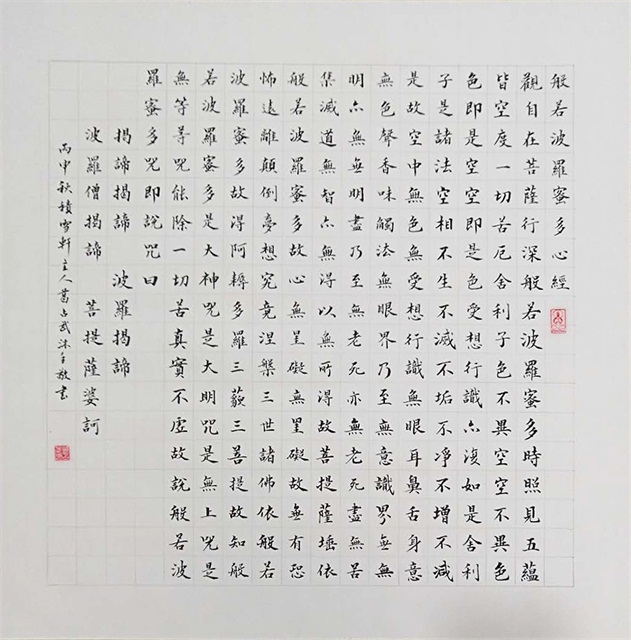 般若波羅蜜多心經
觀自在菩薩行深般若波羅蜜多時照見五蘊
皆空度一切苦厄舍利子色不異空空不異色
色即是空空即是色受想行識亦復如是舍利
子是諸法空相不生不滅不垢不淨不增不減
是故空中無色無受想行識無眼耳鼻舌身意
無色聲香味觸法無眼界乃至無意識界無無
明亦無無明盡乃至無老死亦無老死盡無苦
集滅道無智亦無得以無所得故菩提薩埵依
般若波羅蜜多故心無罣礙無罣礙故無有恐
怖遠離顛倒夢想究竟涅槃三世諸佛依般若
波羅蜜多故得阿耨多羅三藐三菩提故知般
若波羅蜜多是大神咒是大明咒是無上咒是
無等等咒能除一切苦真實不虛故說般若波
羅蜜多咒即說咒曰
揭諦揭諦 波羅揭諦
波羅僧揭諦 菩提薩婆訶
丙申秋積雪軒主人葛占武沐手敬書